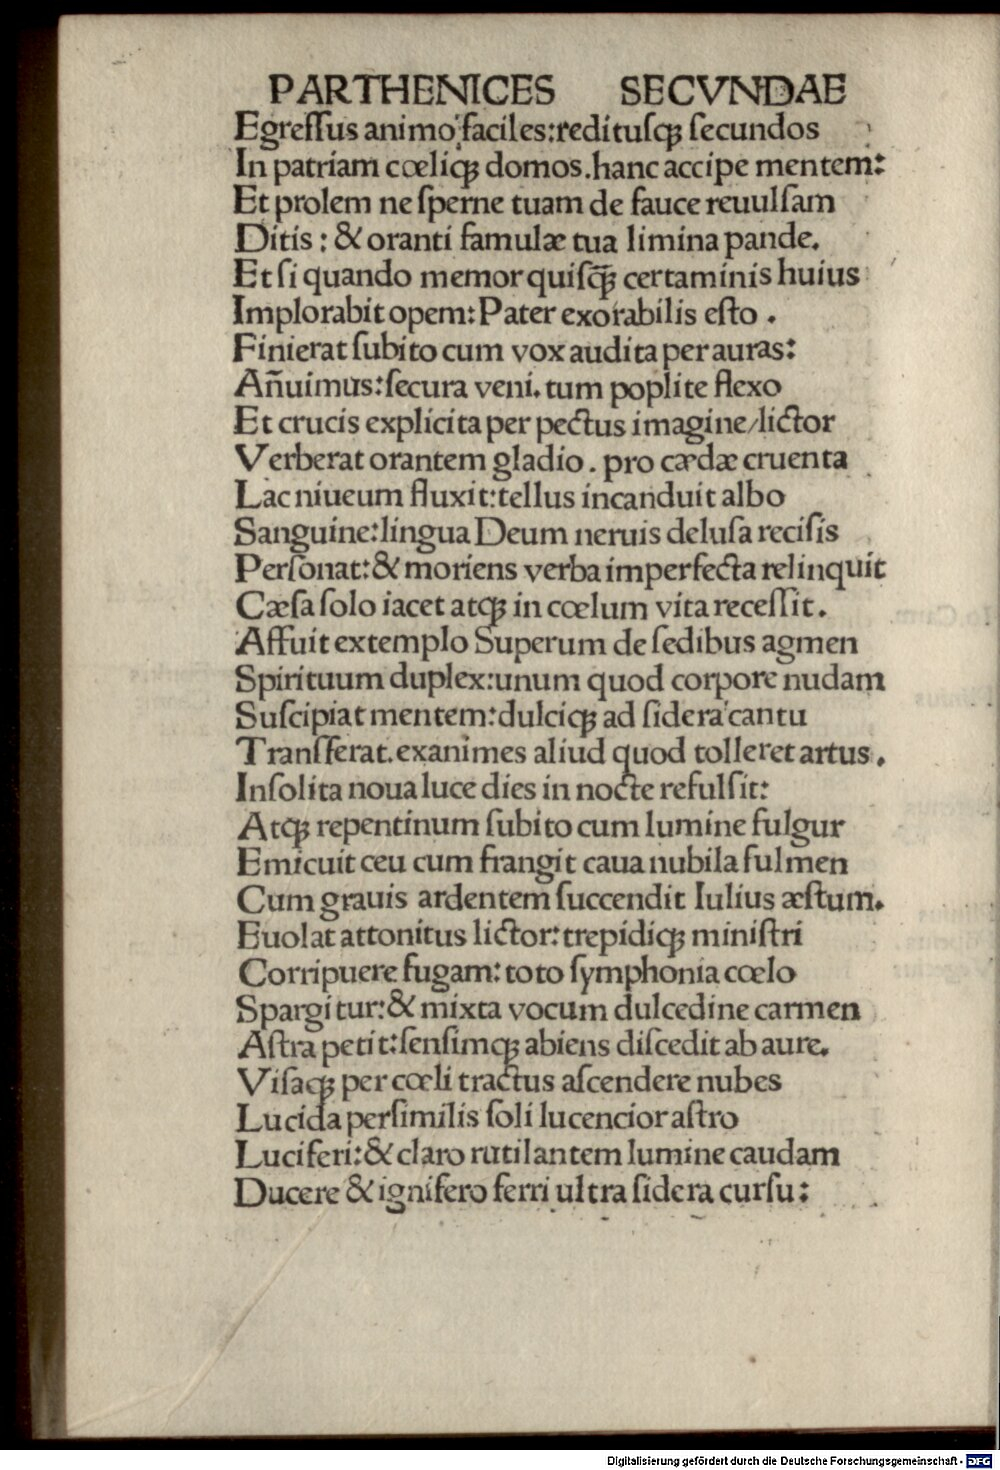 PARTHENICES SECVNDAE
Egreſſus animo faciles: reditusq̃ ſecundos
In patriam cœliq̃ domos. hanc accipe mentem:
Et prolem ne ſperne tuam de fauce reuulſam
Ditis: & oranti famulæ tua limina pande.
Et ſi quando memor quiſq̃ certaminis huius
Implorabit opem: Pater exorabilis eſto.
Finierat ſubito cum vox audita per auras:
Añuimus: ſecura veni. tum poplite flexo
Et crucis explicita per pectus imagine/lictor
Verberat orantem gladio. pro cædæ cruenta
Lac niueum fluxit: tellus incanduit albo
Sanguine: lingua Deum neruis deluſa reciſis
Perſonat: & moriens verba imperfecta relinquit
Cæſa ſolo iacet atq̃ in cœlum vita receſſit.
Affuit extemplo Superum de ſedibus agmen
Spirituum duplex: unum quod corpore nudam
Suſcipiat mentem: dulciq̃ ad ſidera cantu
Tranſferat. exanimes aliud quod tolleret artus.
Inſolita noua luce dies in nocte refulſit:
Atq̃ repentinum ſubito cum lumine fulgur
Emicuit ceu cum frangit caua nubila fulmen
Cum grauis ardentem ſuccendit Iulius æſtum.
Euolat attonitus lictor: trepidiq̃ miniſtri
Corripuere fugam: toto ſymphonia cœlo
Spargitur: & mixta vocum dulcedine carmen
Aſtra petit: ſensimq̃ abiens diſcedit ab aure.
Viſaq̃ per cœli tractus aſcendere nubes
Lucida perſimilis ſoli lucencior aſtro
Luciferi: & claro rutilantem lumine caudam
Ducere & ignifero ferri ultra ſidera curſu:
Digitalisierung gefördert durch die Deutsche Forschungsgemeinschaft - DFG